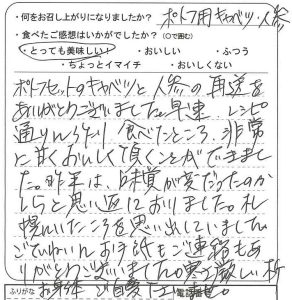 ・何をお召し上がりになりましたか？ ポトフ用キャベツ・人参
・食べたご感想はいかがでしたか？（○で囲む）
・とっても美味しい！ ・おいしい ・ふつう
・ちょっとイマイチ ・おいしくない
ポトフセットのキャベツと人参の再送を
ありがとうございました。早速、レシピ
通りに 食べたところ、非常
に甘くおいしく頂くことができまし
た。昨年は、味覚が変だったのか
しらと思い返しておりました。札
幌にいたころを思い出していました。
ごていねいなお手紙もご連絡もあ
りがとうございました。寒さ厳しい折
お身体ご自愛下さいませ。
ふりがな 電話番号